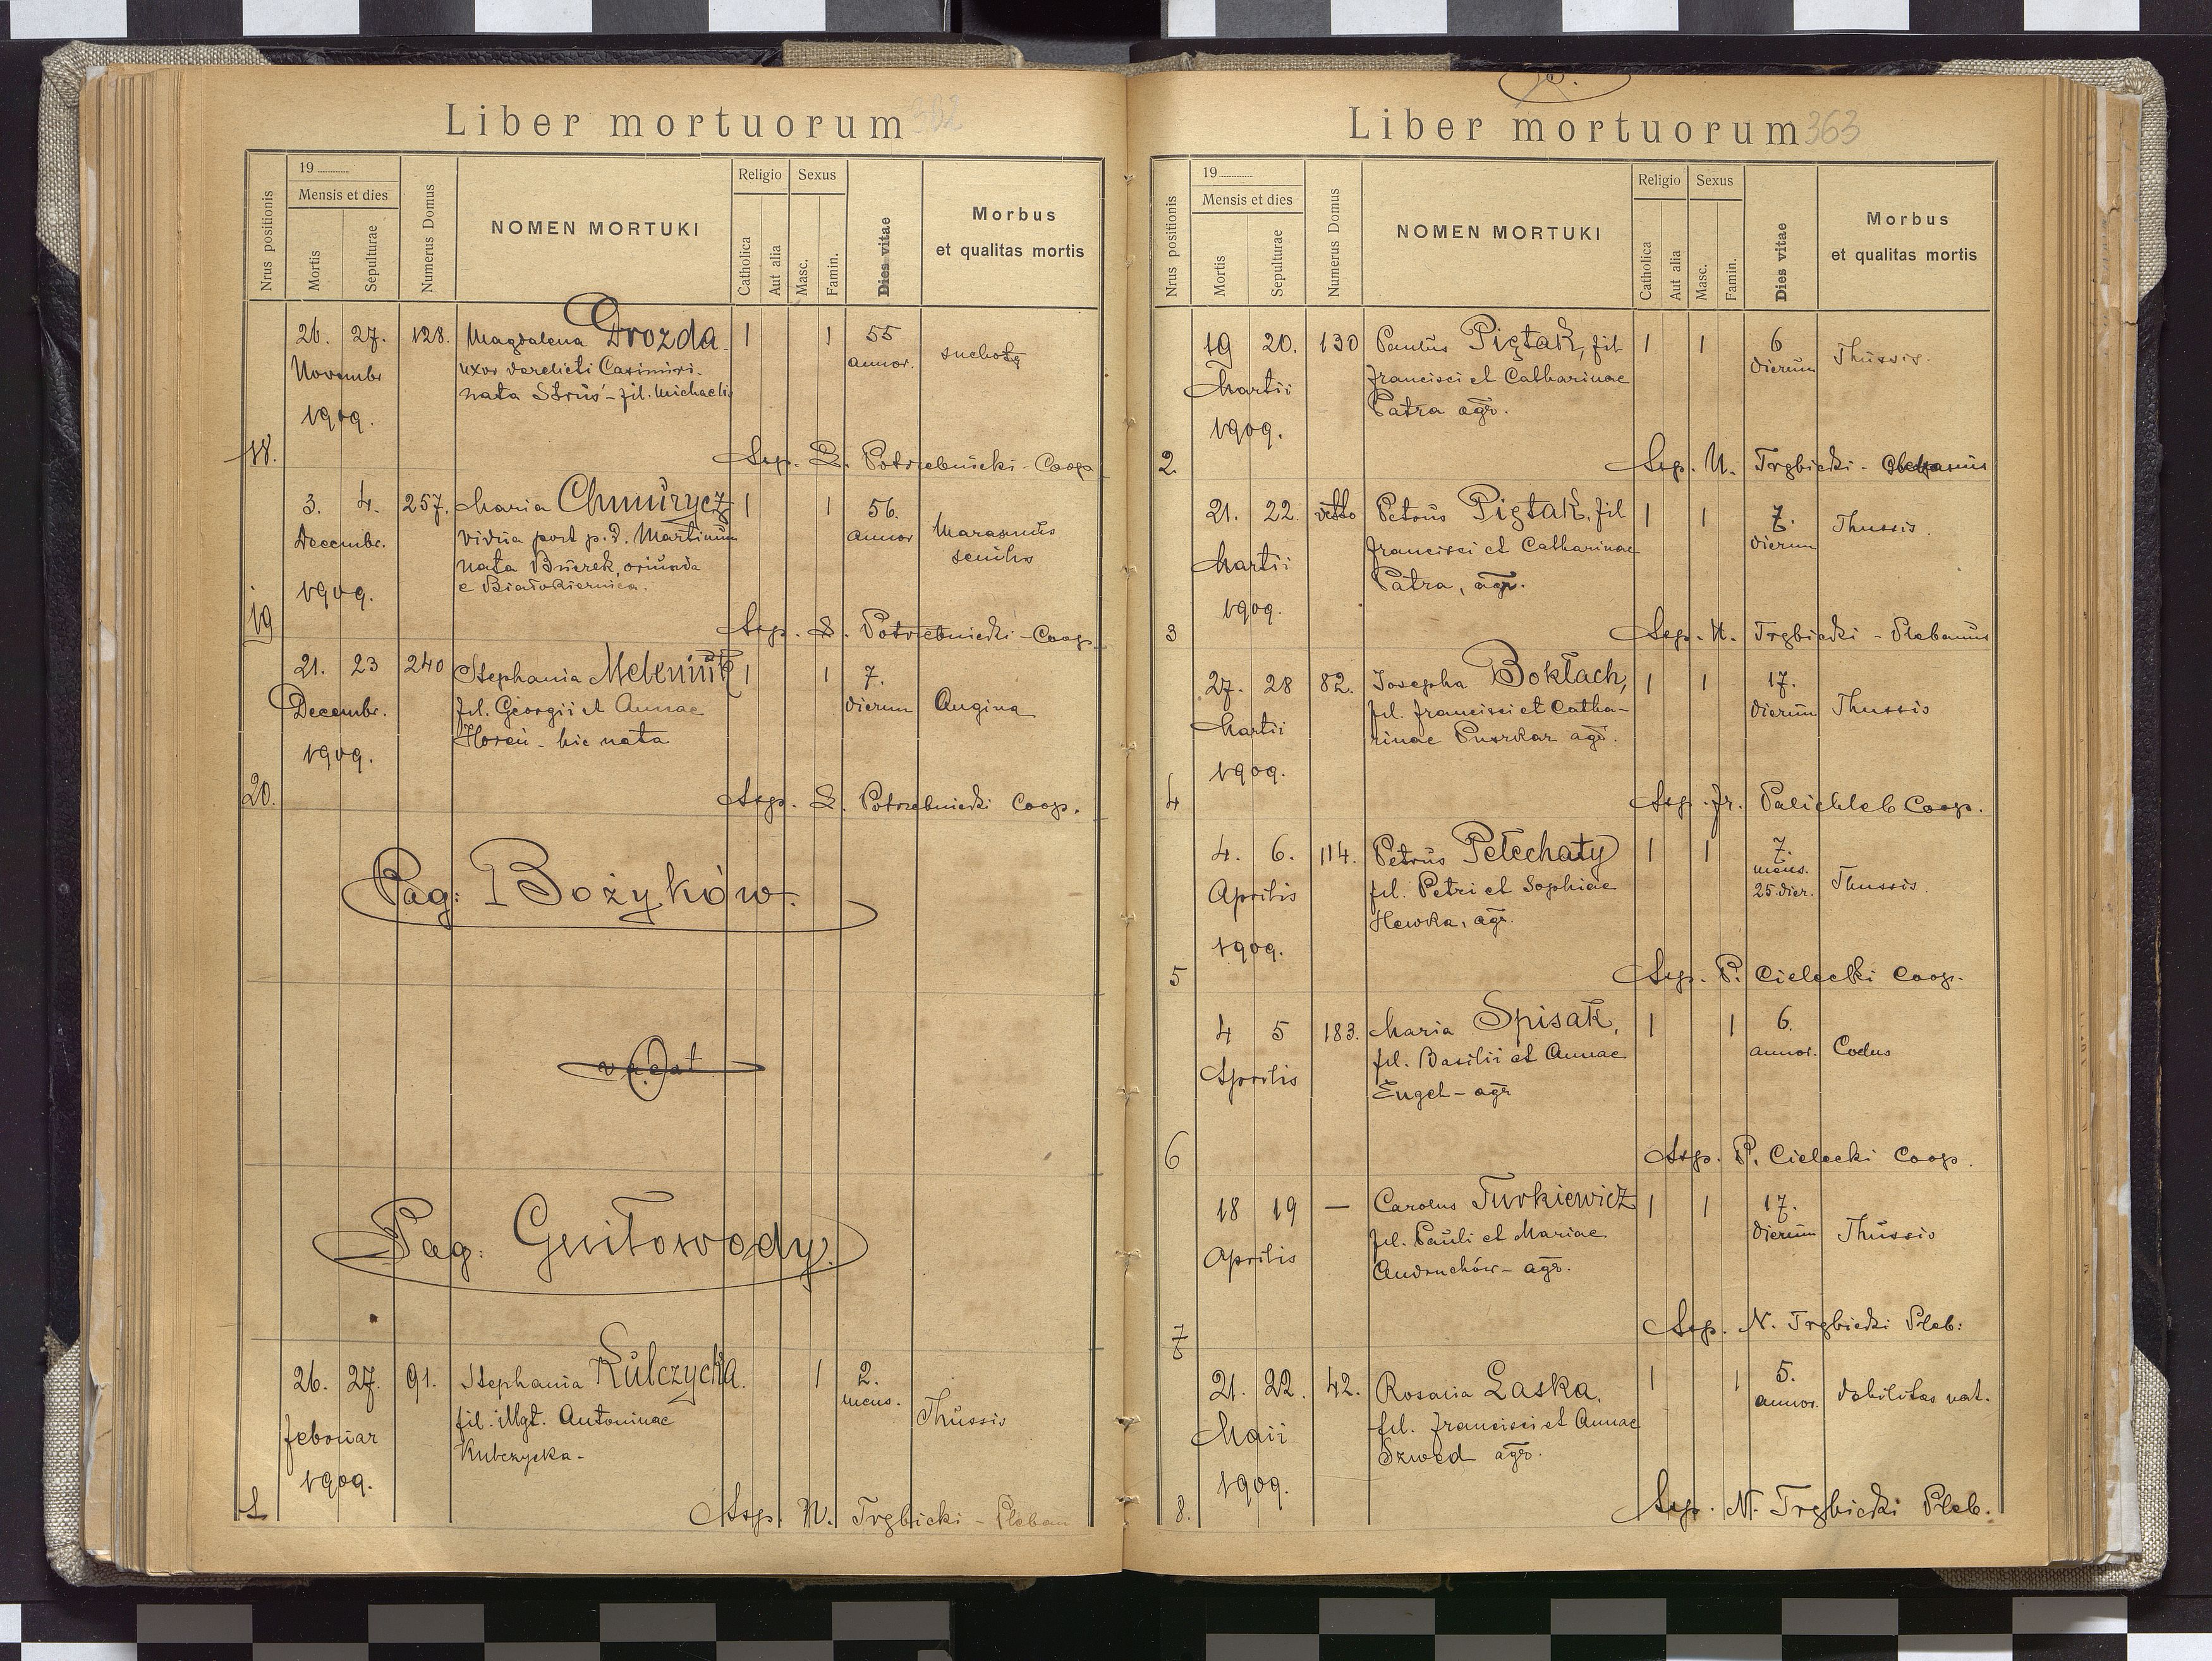 Liber mortuorum 362
19
Mensis et dies
Nrus positionis
Mortis
Sepulturae
Numerus Domus
NOMEN MORTUKI
Religio
Catholica
Aut alia
Sexus
Masc.
Famin.
Dies vitae
Morbus
et qualitas mortis
26. 27. 128. Magdalena Drozda 1 1 55
Novembr uxor derelicti Casimiri annor. suchoty
1909. nata Struś - fil. Michaelis
18. Sep. L. Potrzebnicki - Coop
3. 4. 257. Maria Chmurycz 1 1 56.
Decembr. vidua post p. d. Martinum annor Marasmus
nata Burek, oriunda senilis
1909. e Białokiernica.
19 Sep. L. Potrzebnicki - Coop.
21. 23 240 Stephania Meleniuk 1 1 7.
Decembr. fil. Georgii et Annae dierum Angina
1909. - hic nata
20. Sep. L. Potrzebnicki Coop.
Pag: Bożyków.
vacat
Pag: Gniłowody.
26. 27. 91. Stephania Kulczycka. 1 2.
Februar fil. illgt. Antoninae mens. Thussis
1909. Kulczycka -
1 Sep. N. Trębicki - Pleban
Liber mortuorum 363
19
Mensis et dies
Nrus positionis
Mortis
Sepulturae
Numerus Domus
NOMEN MORTUKI
Religio
Catholica
Aut alia
Sexus
Masc.
Famin.
Dies vitae
Morbus
et qualitas mortis
19 20. 130 Paulus Piętak, fil 1 1 6 Thussis.
Martii Francisci et Catharinae dierum
1909. Patra agr.
2. Sep. N. Trębicki -
21. 22. detto Petrus Piętak, fil 1 1 7. Thussis.
Martii Francisci et Catharinae dierum
1909. Patra, agr.
3 Sep. N. Trębicki - Plebanus
27. 28 82. Josepha Bokłach, 1 1 17.
Martii fil. Francisci et Catha- dierum Thussis
1909. rinae Puszkar agr.
4 Sep. Fr. Palichleb Coop.
4. 6. 114. Petrus Pełechaty 1 1 7.
Aprilis fil. Petri et Sophiae mens. 25. dier. Thussis.
1909. Hewka, agr.
5 Sep. P. Cielecki Coop.
4 5 183. Maria Spisak, 1 1 6.
Aprilis fil. Basilii et Annae annor.
Engel - agr
6 Sep. P. Cielecki Coop.
18 19 — Carolus Turkiewicz 1 1 17.
Aprilis fil. Pauli et Mariae dierum Thussis
Andruchów - agr.
7 Sep. N. Trębicki Pleb:
21. 22. 42. Rosalia Laska, 1 1 5.
Maii fil. Francisci et Annae annor. debilitas nat.
1909. Szwed agr.
8. Sep. N. Trębicki Pleb.